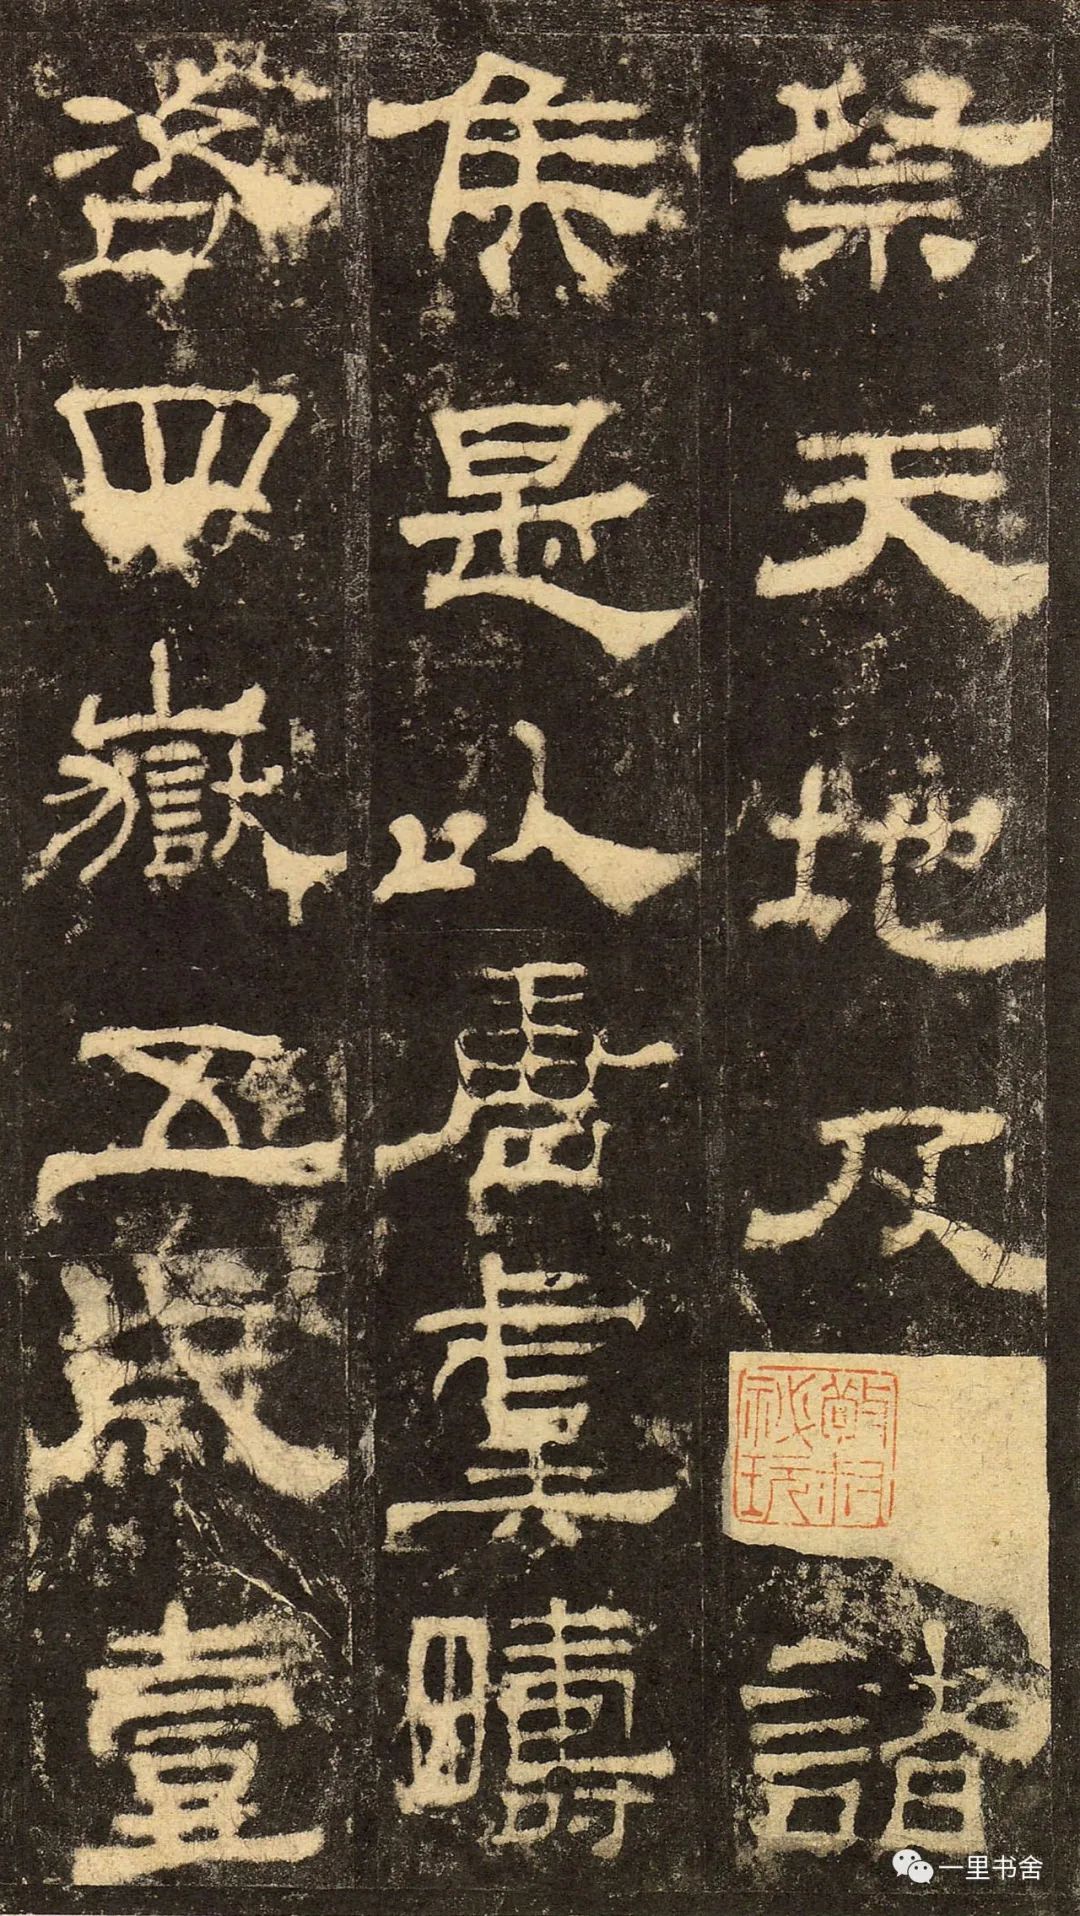 祭天地及諸
侯是以唐虞疇
咨四嶽五歲壹
一里书舍